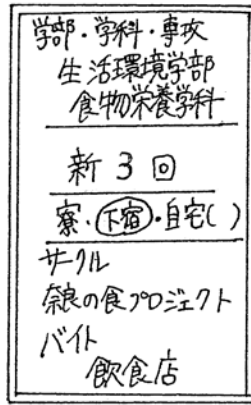 学部・学科・専攻
生活環境学部
食物栄養学科
新3回
寮・下宿・自宅( )
サークル
奈良の食プロジェクト
バイト
飲食店